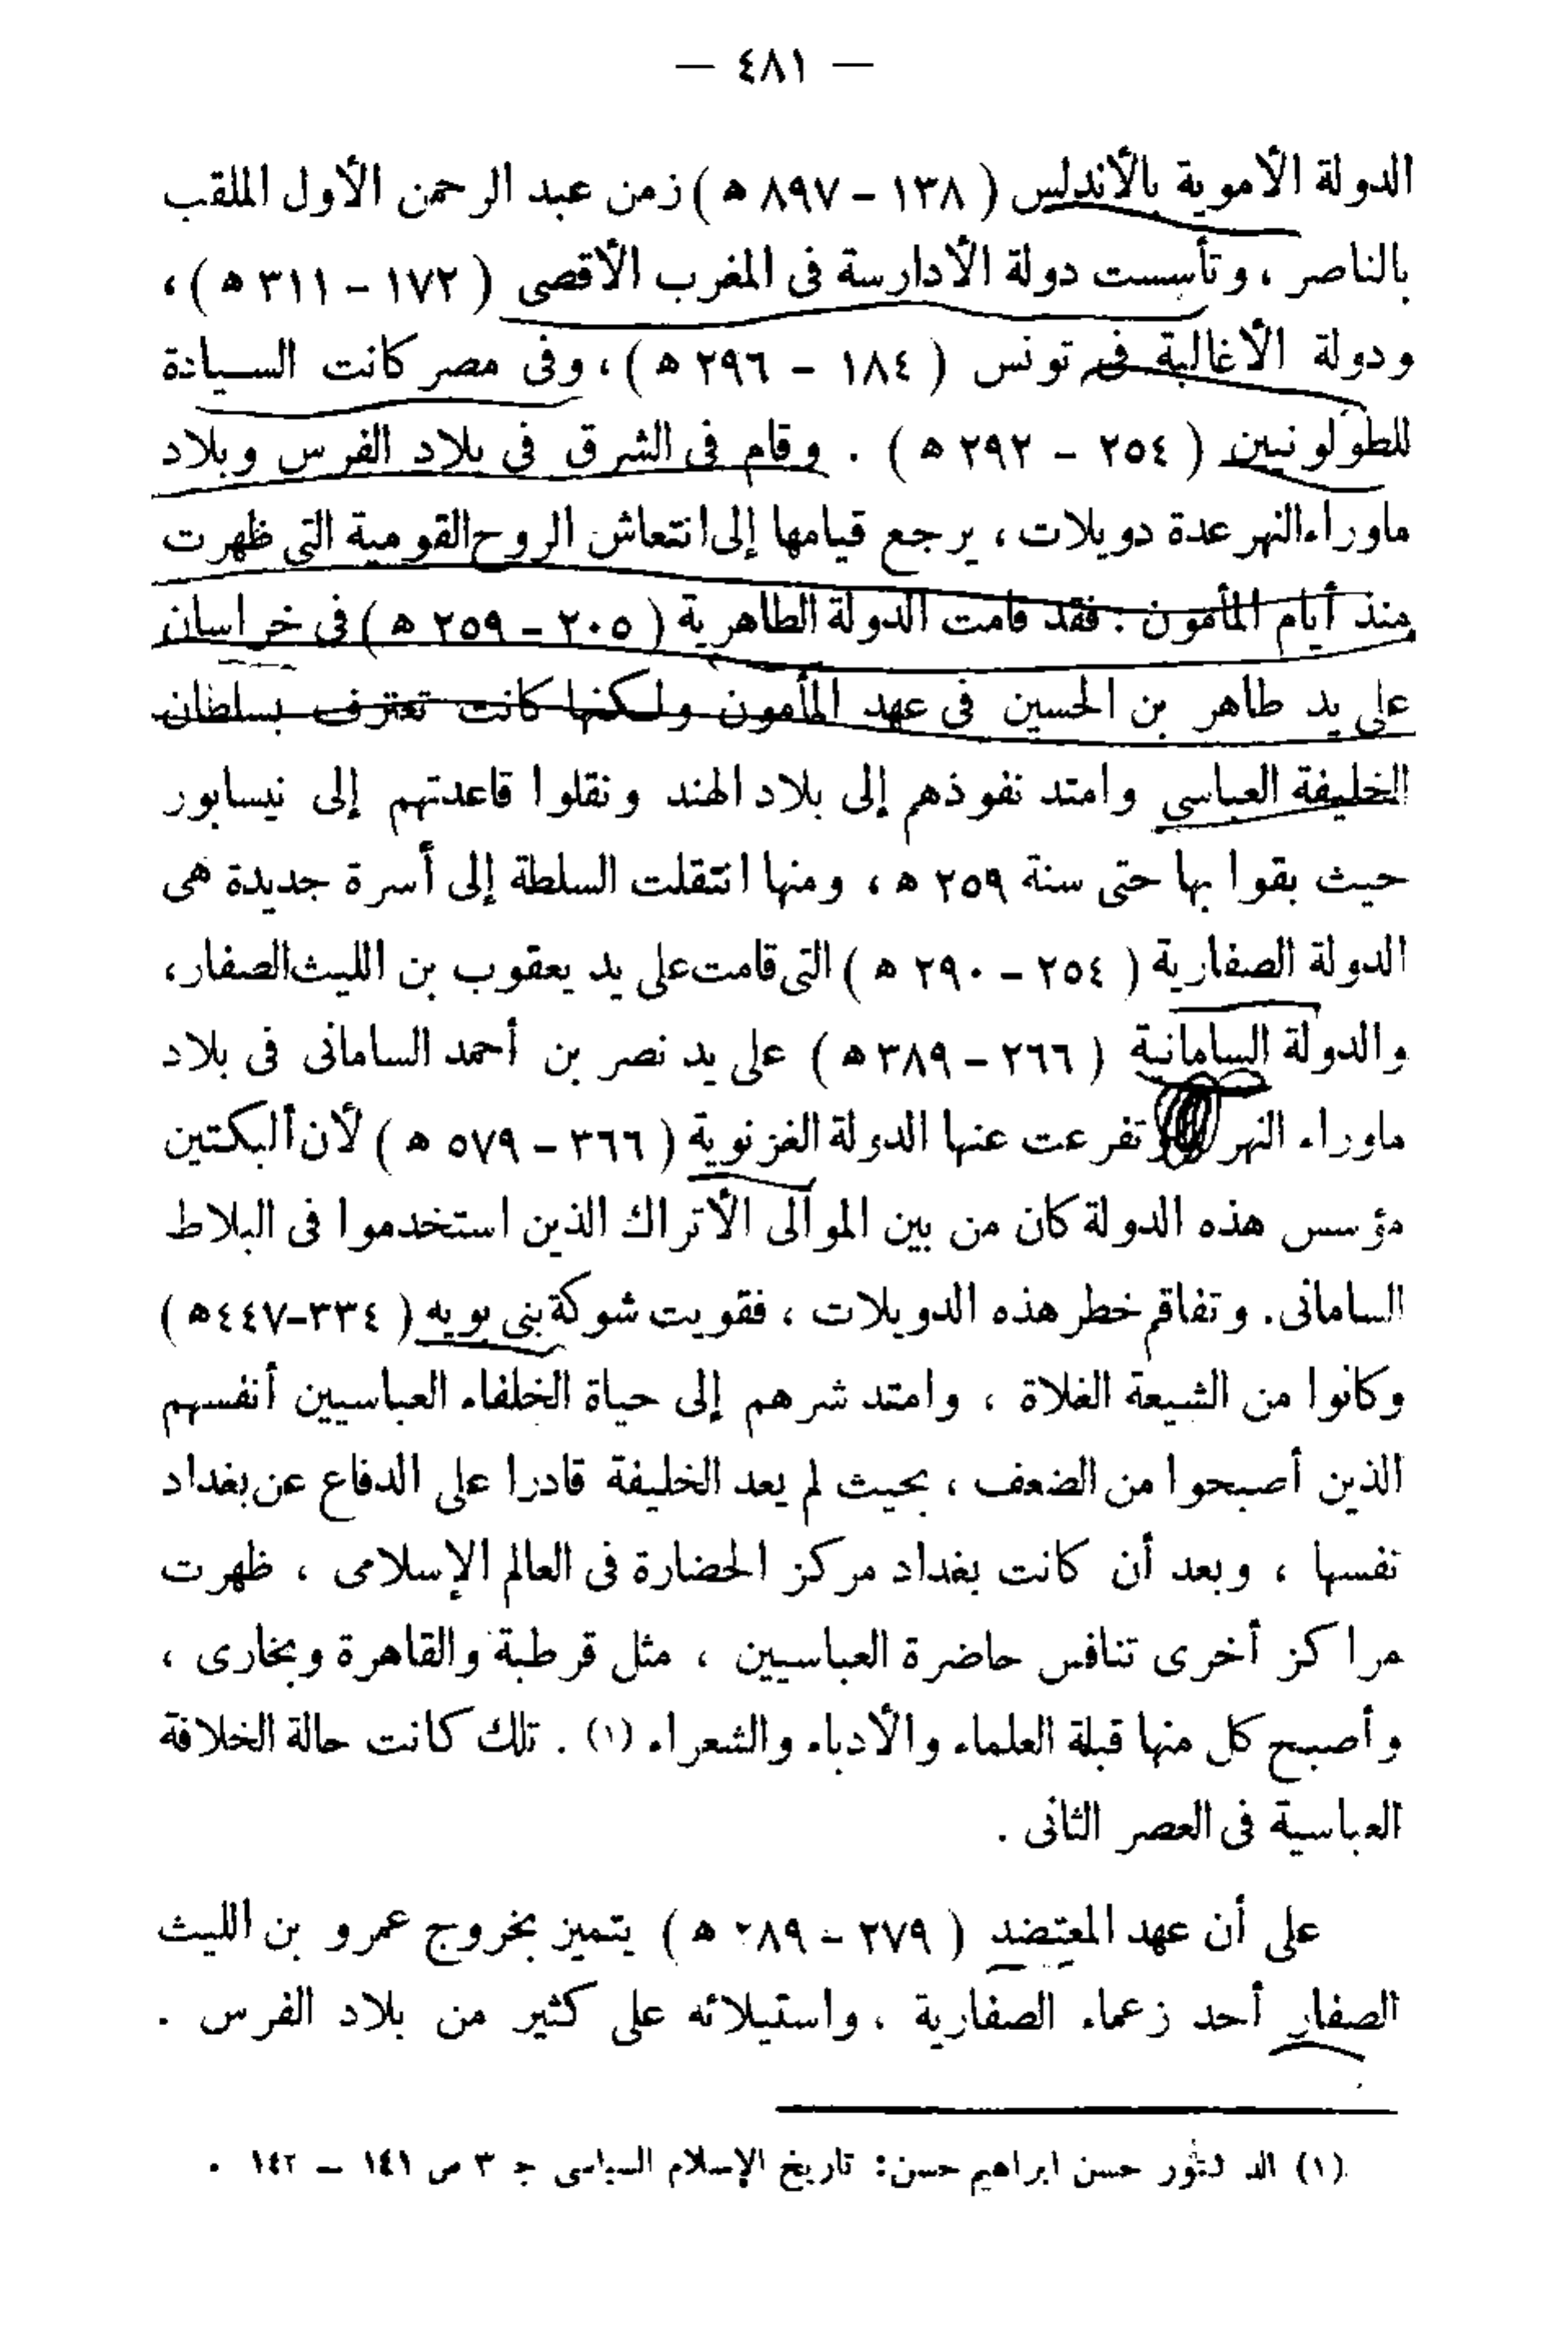 — ٤٨١ —
الدولة الأموية بالأندلس ( ١٣٨ – ٨٩٧ ه ) زمن عبد الرحمن الأول الملقب
بالناصر ، وتأسست دولة الأدارسة فى المغرب الأقصى ( ١٧٢ – ٣١١ ه ) ،
ودولة الأغالبة فى تونس ( ١٨٤ – ٢٩٦ ه ) ، وفى مصر كانت السيادة
للطولونيين ( ٢٥٤ – ٢٩٢ ه ) . وقام فى الشرق فى بلاد الفرس وبلاد
ماوراء النهر عدة دويلات ، يرجع قيامها إلى انتعاش الروح القومية التى ظهرت
منذ أيام المأمون : فقد قامت الدولة الطاهرية ( ٢٠٥ – ٢٥٩ ه ) فى خراسان
على يد طاهر بن الحسين فى عهد المأمون ولكنها كانت تعترف بسلطان
الخليفة العباسى وامتد نفوذهم إلى بلاد الهند ونقلوا قاعدتهم إلى نيسابور
حيث بقوا بها حتى سنة ٢٥٩ ه ، ومنها انتقلت السلطة إلى أسرة جديدة هى
الدولة الصفارية ( ٢٥٤ – ٢٩٠ ه ) التى قامت على يد يعقوب بن الليث الصفار ،
والدولة السامانية ( ٢٦٦ – ٣٨٩ ه ) على يد نصر بن أحمد السامانى فى بلاد
ماوراء النهر تفرعت عنها الدولة الغزنوية ( ٣٦٦ – ٥٧٩ ه ) لأن ألبكتين
مؤسس هذه الدولة كان من بين الموالى الأتراك الذين استخدموا فى البلاط
السامانى . وتفاقم خطر هذه الدويلات ، فقويت شوكة بنى بويه ( ٣٣٤–٤٤٧ه )
وكانوا من الشيعة الغلاة ، وامتد شرهم إلى حياة الخلفاء العباسيين أنفسهم
الذين أصبحوا من الضعف ، بحيث لم يعد الخليفة قادرا على الدفاع عن بغداد
نفسها ، وبعد أن كانت بغداد مركز الحضارة فى العالم الإسلامى ، ظهرت
مراكز أخرى تنافس حاضرة العباسيين ، مثل قرطبة والقاهرة وبخارى ،
وأصبح كل منها قبلة العلماء والأدباء والشعراء (١) . تلك كانت حالة الخلافة
العباسية فى العصر الثانى .
على أن عهد المعتضد ( ٢٧٩ – ٢٨٩ ه ) يتميز بخروج عمرو بن الليث
الصفار أحد زعماء الصفارية ، واستيلائه على كثير من بلاد الفرس .
(١) الدكتور حسن ابراهيم حسن: تاريخ الإسلام السياسى ج ٣ ص ١٤١ – ١٤٢ .